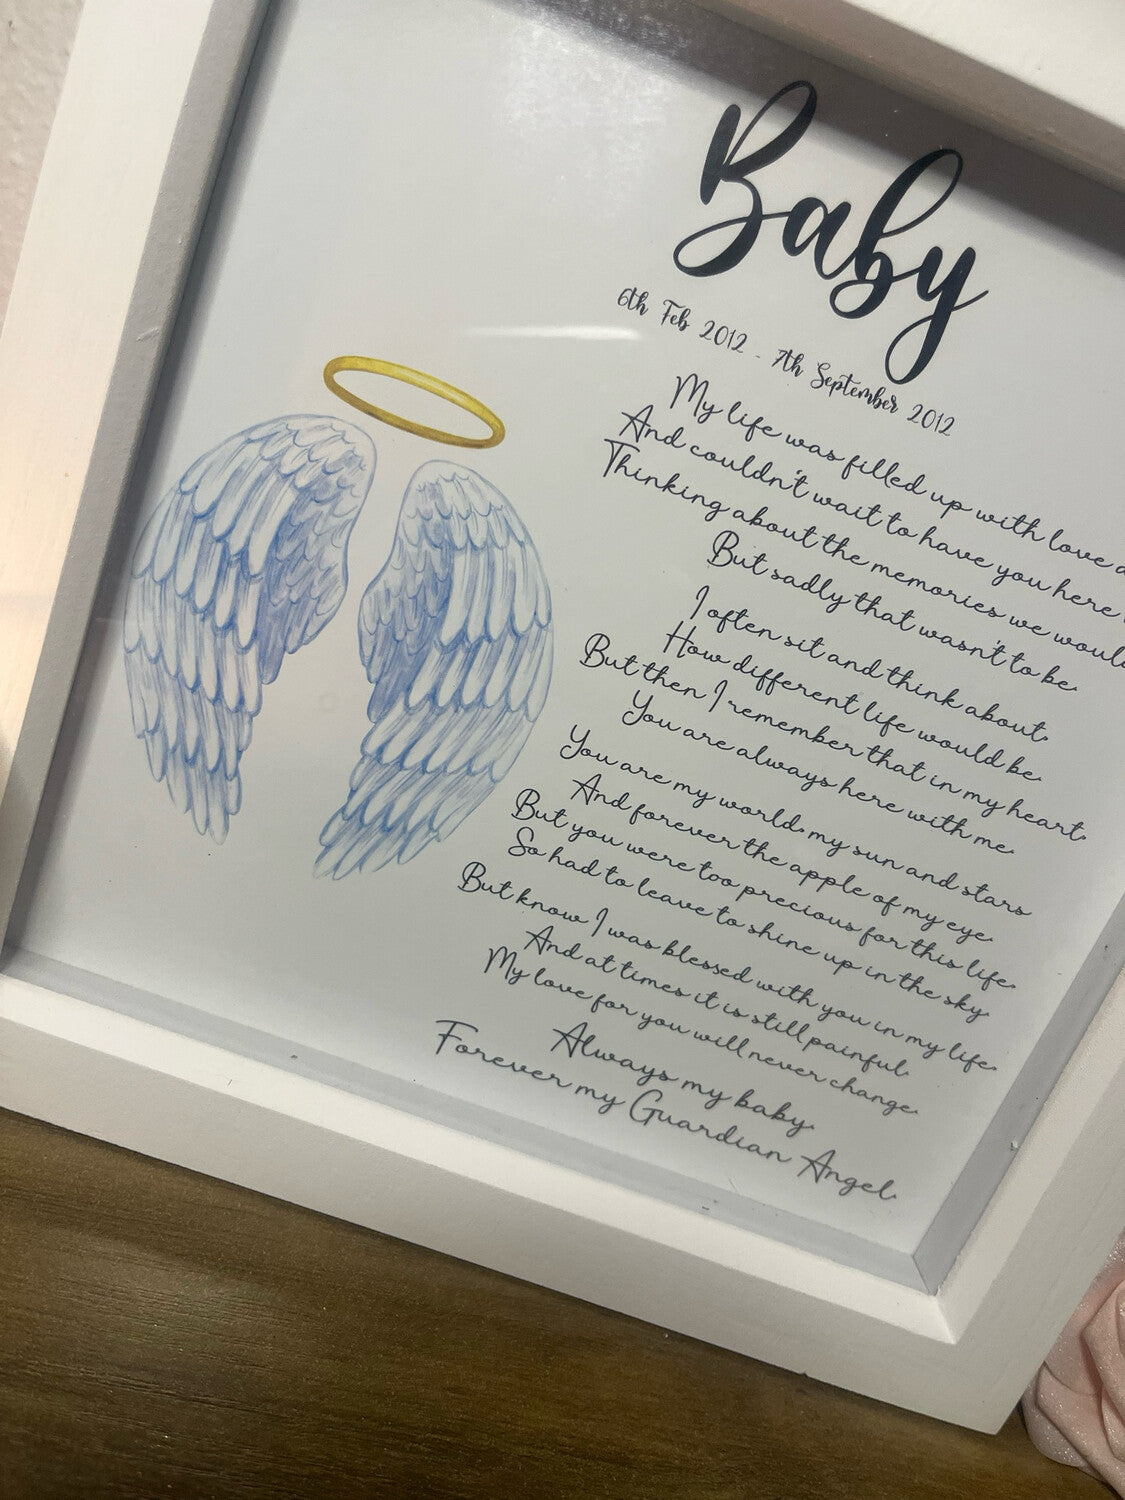 Baby
6th Feb 2012 - 7th September 2012
My life was filled up with love
And couldn't wait to have you here
Thinking about the memories we would
But sadly that wasn't to be.
I often sit and think about.
How different life would be.
But then I remember that in my heart.
You are always here with me.
You are my world, my sun and stars
And forever the apple of my eye.
But you were too precious for this life.
So had to leave to shine up in the sky.
But know I was blessed with you in my life.
And at times it is still painful.
My love for you will never change.
Always my baby.
Forever my Guardian Angel.